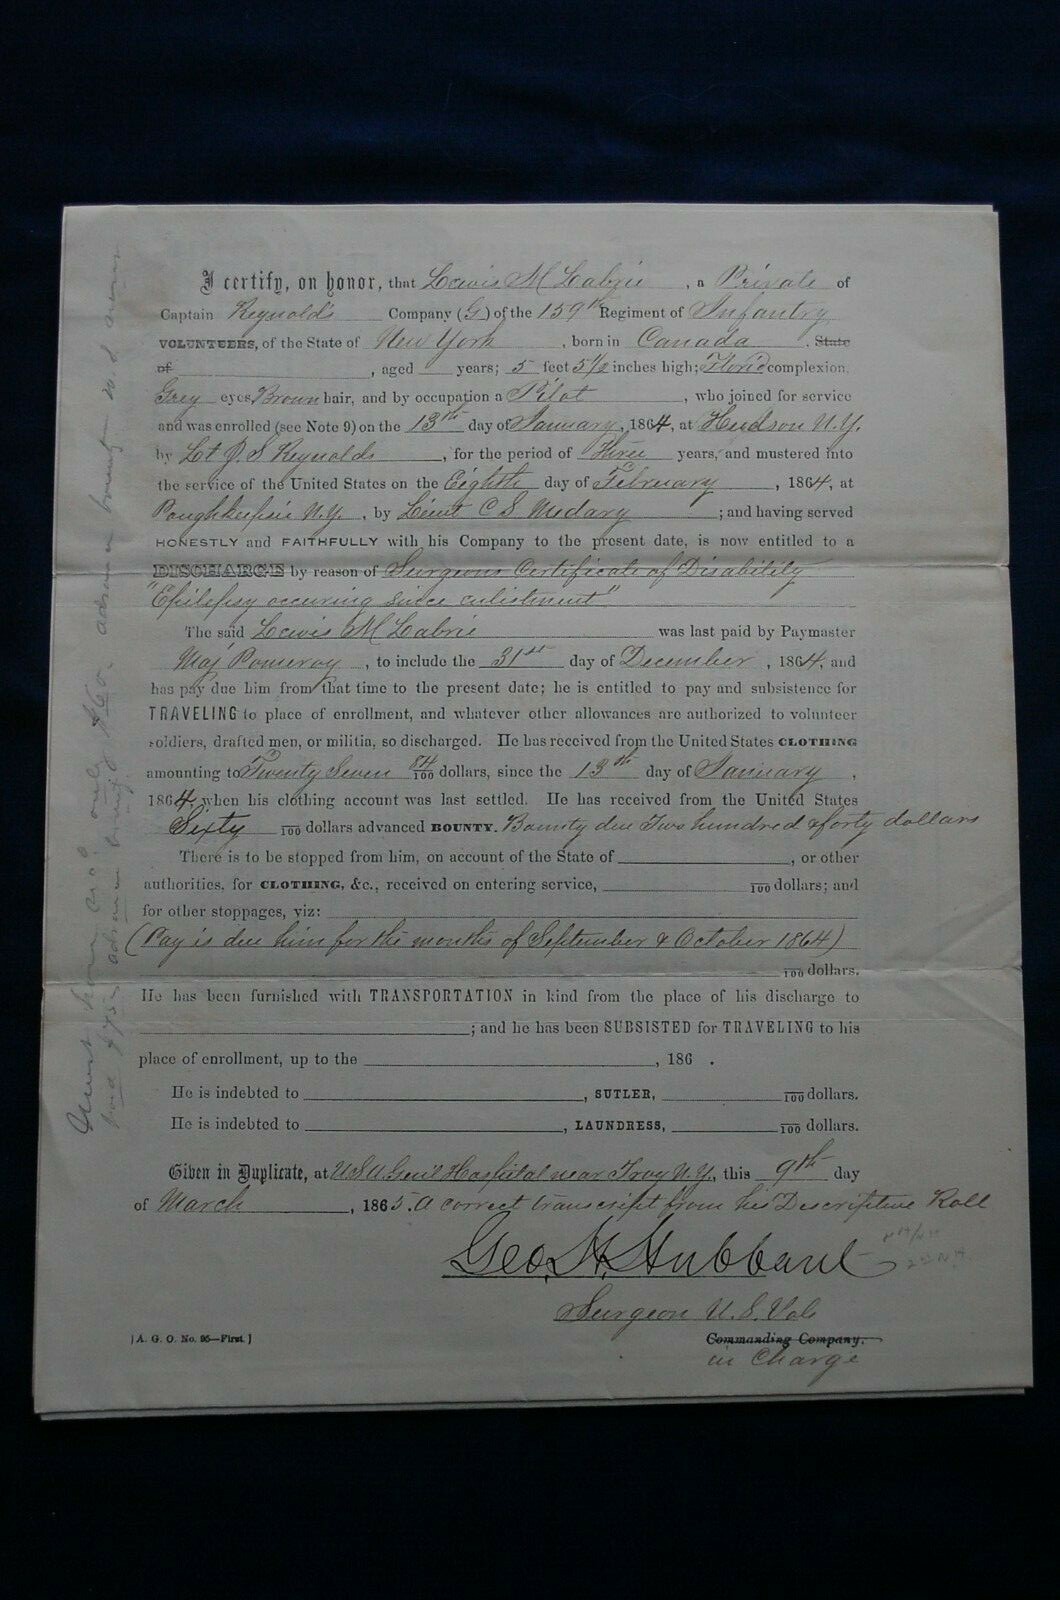 I certify, on honor, that Lewis M Labrie, a Private of
Captain Reynolds Company (G) of the 159th Regiment of Infantry
VOLUNTEERS, of the State of New York, born in Canada. State
of , aged years; 5 feet 5 1/2 inches high; Florid complexion,
Grey eyes, Brown hair, and by occupation a Pilot, who joined for service
and was enrolled (see Note 9) on the 13th day of January, 1864, at Hudson N.Y.
by Lt J. S. Reynolds, for the period of Three years, and mustered into
the service of the United States on the Eighth day of February, 1864, at
Poughkeepsie N.Y., by Lieut C S Medary; and having served
HONESTLY and FAITHFULLY with his Company to the present date, is now entitled to a
DISCHARGE by reason of Surgeons Certificate of Disability
"Epilepsy occuring since enlistment"
The said Lewis M Labrie was last paid by Paymaster
Maj Pomeroy, to include the 31st day of December, 1864, and
has pay due him from that time to the present date; he is entitled to pay and subsistence for
TRAVELING to place of enrollment, and whatever other allowances are authorized to volunteer
soldiers, drafted men, or militia, so discharged. He has received from the United States CLOTHING
amounting to Twenty Seven 84/100 dollars, since the 13th day of January,
1864, when his clothing account was last settled. He has received from the United States
Sixty /100 dollars advanced BOUNTY. Bounty due Two hundred & forty dollars
There is to be stopped from him, on account of the State of , or other
authorities, for CLOTHING, &c., received on entering service, /100 dollars; and
for other stoppages, viz:
(Pay is due him for the months of September & October 1864)
/100 dollars.
He has been furnished with TRANSPORTATION in kind from the place of his discharge to
; and he has been SUBSISTED for TRAVELING to his
place of enrollment, up to the , 186 .
He is indebted to , SUTLER, /100 dollars.
He is indebted to , LAUNDRESS, /100 dollars.
Given in Duplicate, at U.S.A. Genl Hospital near Troy N.Y., this 9th day
of March, 1865. A correct transcript from his Descriptive Roll
Geo. H. Hubbard
Surgeon U.S. Vols
[A. G. O. No. 95—First.]
Commanding Company.
in Charge